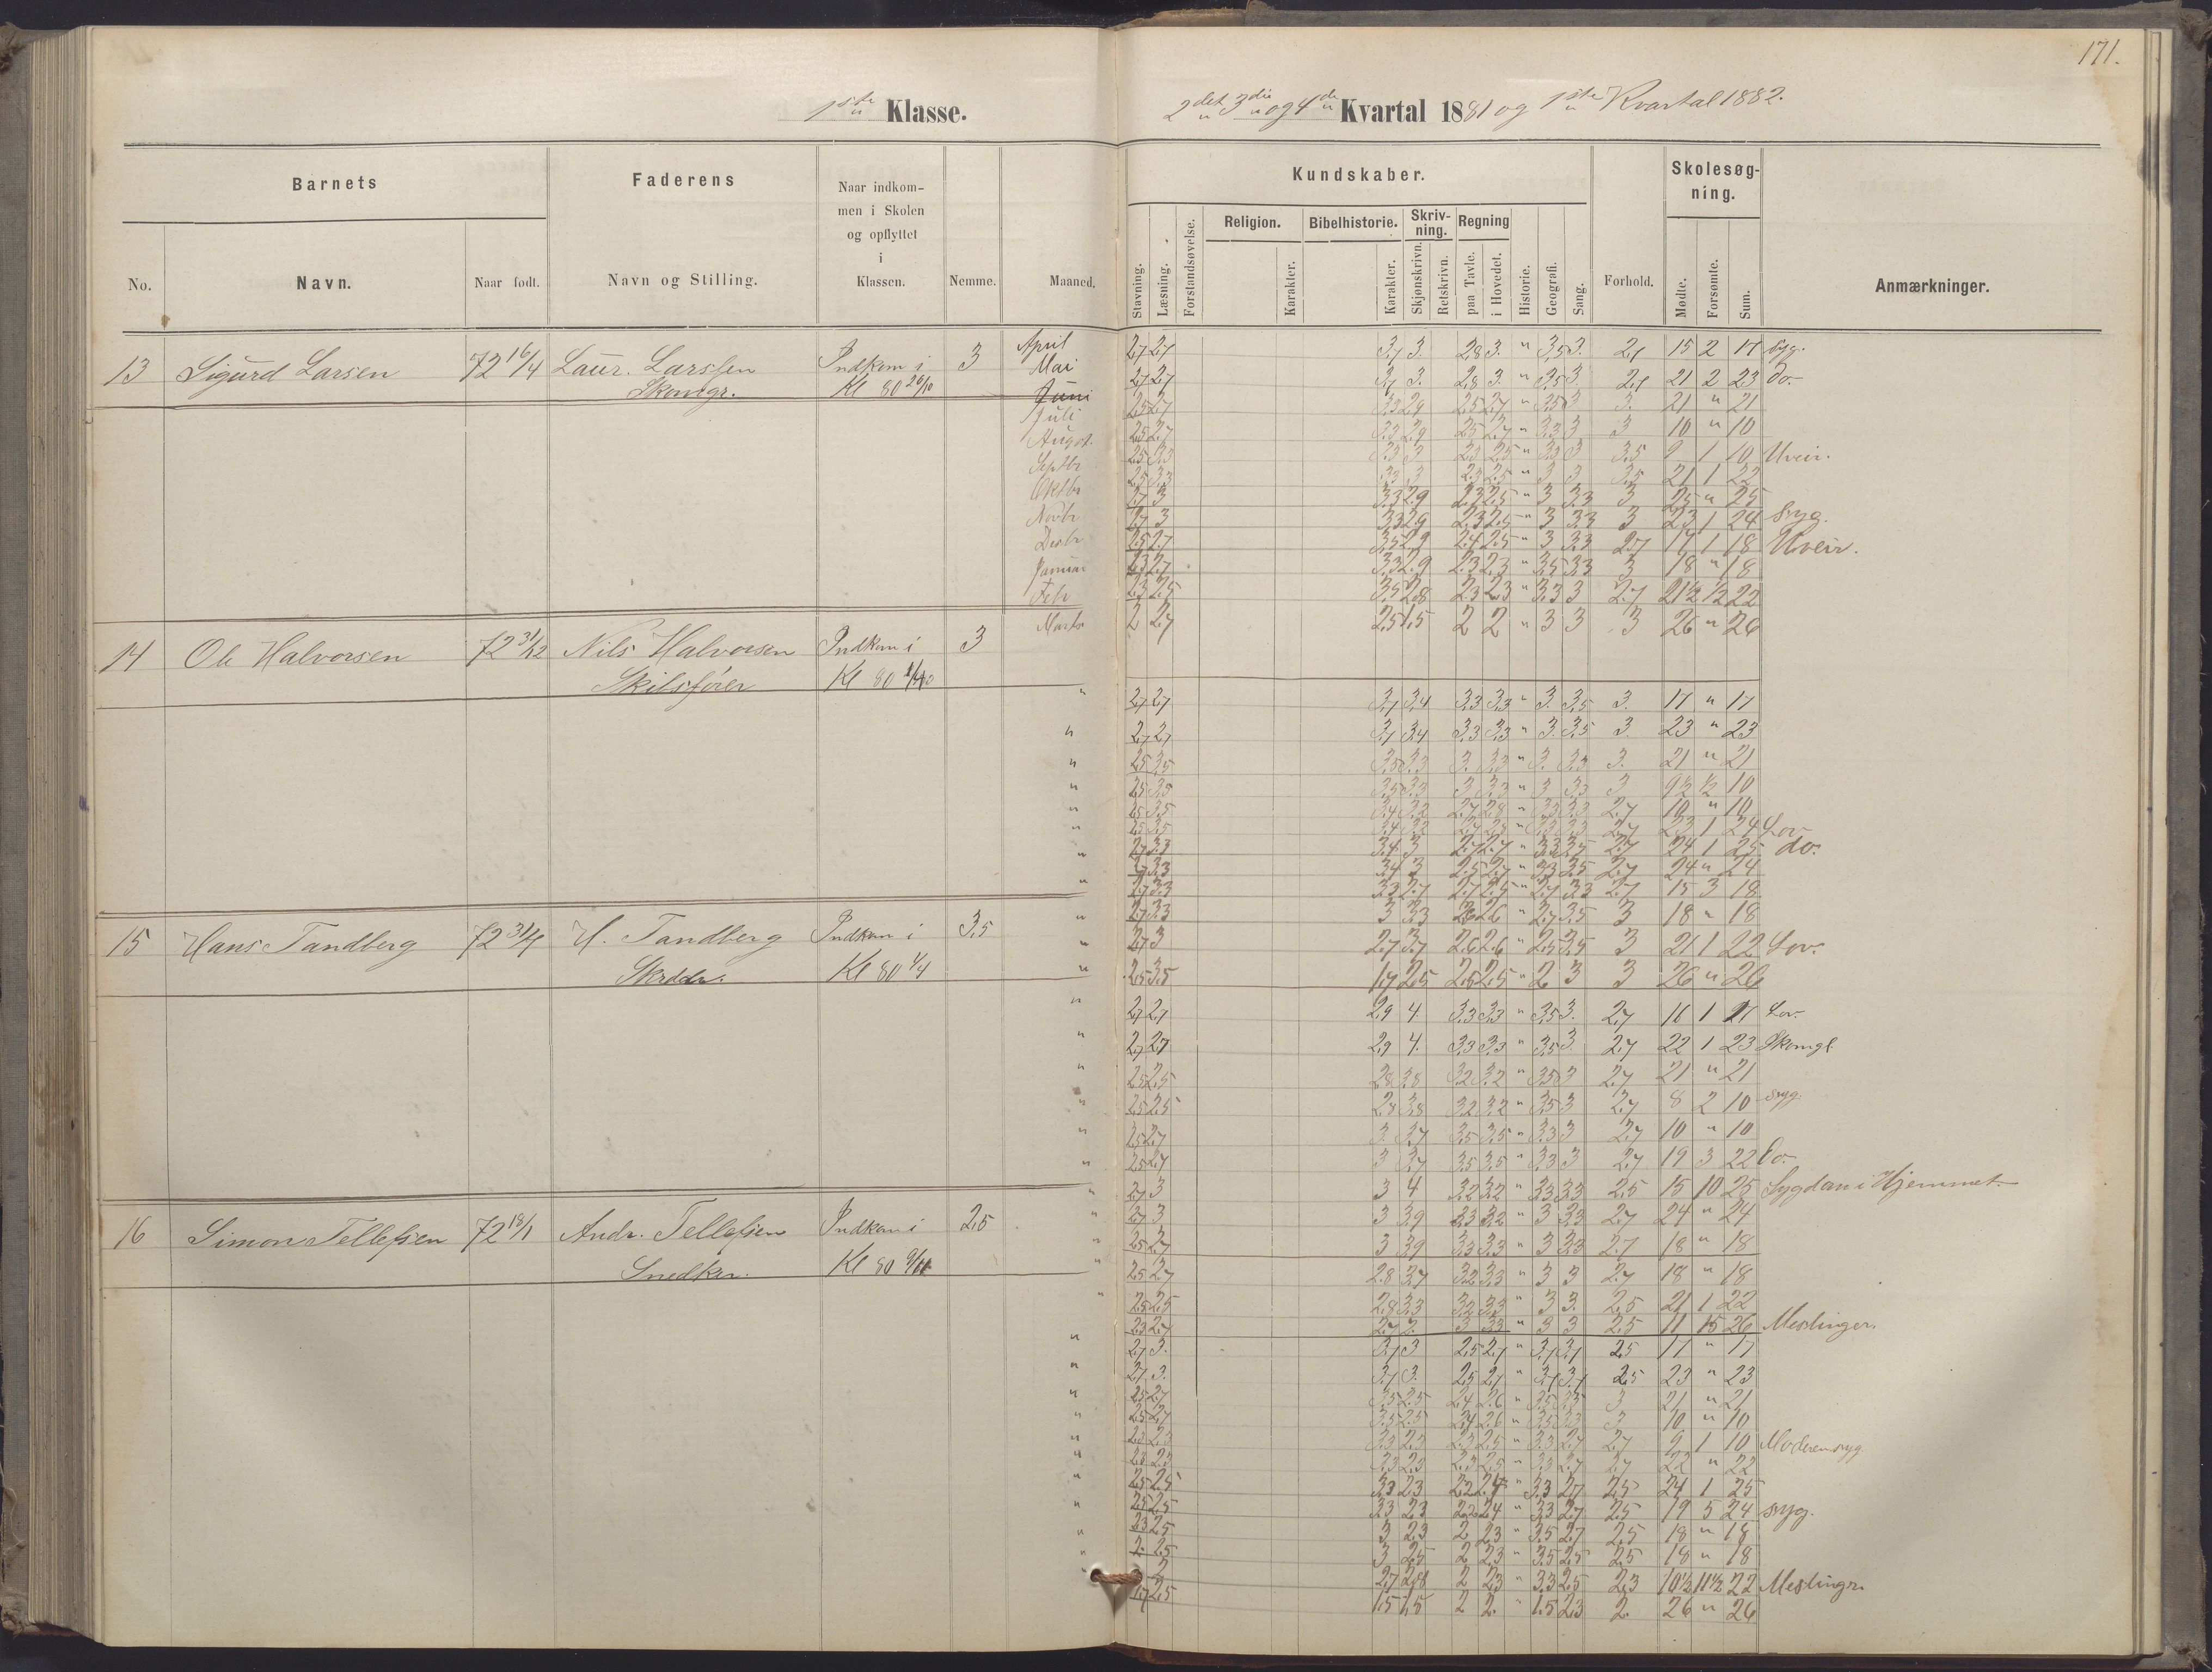 171.
1ste Klasse.
2det 3die og 4de Kvartal 1881 og 1ste Kvartal 1882.
Barnets
Faderens
Naar indkom-
men i Skolen
og opflyttet
i
Klassen.
Kundskaber.
Skolesøg-
ning.
Religion.
Bibelhistorie.
Skriv-
ning.
Regning
No.
Navn.
Naar født.
Navn og Stilling.
Nemme.
Maaned.
Stavning.
Læsning.
Forstandsøvelse.
Karakter.
Karakter.
Skjønskrivn.
Retskrivn.
paa Tavle.
i Hovedet.
Historie.
Geografi.
Sang.
Forhold.
Mødte.
Forsømte.
Sum.
Anmærkninger.
13 Sigurd Larsen 72 16/4 Laur. Larssen Indkom i 3
Skomgr. Kl 80
April 2,7 2,7 3,7 3. 2,8 3. " 3,5 3. 2,7 15 2 17 syg.
Mai 2,7 2,7 3,7 3. 2,8 3. " 3,5 3. 2,7 21 2 23 do.
Juni 2,5 2,7 3,3 2,9 2,5 2,7 " 3,5 3 3. 21 " 21
Juli 2,5 2,7 3,3 2,9 2,5 2,7 " 3,3 3 3 10 " 10
August 2,5 3,3 3,3 3 2,3 2,5 " 3,3 3 3,5 9 1 10 Uveir.
Septbr 2,5 3,3 3,3 3 2,3 2,5 " 3 3 3,5 21 1 22
Oktbr 2,7 3 3,3 2,9 2,3 2,5 " 3 3,3 3 25 " 25
Novbr 2,7 3 3,3 2,9 2,3 2,5 " 3 3,3 3 23 1 24 Syg.
Desbr 2,5 2,7 3,5 2,9 2,4 2,5 " 3 3,3 2,7 17 1 18 Uveir.
Januar 2,3 2,7 3,3 2,9 2,3 2,3 " 3,5 3,3 3 18 " 18
Feb 2,3 2,5 3,5 2,8 2,3 2,3 " 3,3 3 2,7 21½ ½ 22
Marts 2 2,7 2,5 1,5 2 2 " 3 3 3 26 " 26
14 Ole Halvorsen 72 31/12 Nils Halvorsen Indkom i 3
Kl 80
" 2,7 2,7 3,7 3,4 3,3 3,3 " 3. 3,5 3. 17 " 17
" 2,7 2,7 3,7 3,4 3,3 3,3 " 3. 3,5 3. 23 " 23
" 2,5 3,5 3,5 3,3 3. 3,3 " 3. 3,3 3. 21 " 21
" 2,5 3,5 3,5 3,3 3 3,3 " 3 3,3 3 9½ ½ 10
" 2,5 3,5 3,4 3,2 2,7 2,8 " 3,3 3,3 2,7 10 " 10
" 2,5 3,5 3,4 3,2 2,7 2,8 " 3,3 3,3 2,7 23 1 24 Lov.
" 2,7 3,3 3,4 3 2,7 2,7 " 3,3 3,5 2,7 24 1 25 do.
" 2,7 3,3 3,4 3 2,5 2,7 " 3,3 3,5 2,7 24 " 24
2,7 3,3 3,3 2,7 2,7 2,5 " 2,7 3,3 2,7 15 3 18
" 2,7 3,3 3 3,3 2,6 2,6 " 2,7 3,5 3 18 " 18
15 Hans Tandberg H. Tandberg Indkom i 3,5
Kl 80 1/4
" 2,7 3 2,7 3,7 2,6 2,6 " 2,5 3,5 3 21 1 22 Lov.
" 2,5 3,5 1,7 2,5 2,5 2,5 " 2 3 3 26 " 26
" 2,7 2,7 2,9 4. 3,3 3,3 " 3,5 3. 2,7 16 1 17 Lov.
" 2,7 2,7 2,9 4. 3,3 3,3 " 3,5 3 2,7 22 1 23
" 2,5 2,5 2,8 3,8 3,2 3,2 " 3,5 3 2,7 21 " 21
" 2,5 2,5 2,8 3,8 3,2 3,2 " 3,5 3 2,7 8 2 10 syg.
" 2,5 2,7 3. 3,7 3,5 3,5 " 3,3 3 2,7 10 " 10
" 2,5 2,7 3 3,7 3,5 3,5 " 3,3 3 2,7 19 3 22 Do.
" 2,7 3 3 4 3,2 3,2 " 3,3 3,3 2,5 15 10 25 Sygdom i Hjemmet.
16 Simon Tellefsen 72 18/1 Andr. Tellefsen Indkom i 2,5
Snedker. Kl 80
" 2,7 3 3 3,9 3,3 3,2 " 3 3,3 2,7 24 " 24
" 2,5 2,7 3 3,9 3,3 3,3 " 3 3,3 2,7 18 " 18
" 2,5 2,7 2,8 3,7 3,2 3,3 " 3 3 2,7 18 " 18
" 2,5 2,5 2,8 3,3 3,2 3,3 " 3 3. 2,5 21 1 22
2,3 2,7 2,7 2. 3 3,3 " 3 3 2,5 11 15 26 Meslinger.
" 2,7 3. 3,7 3 2,5 2,7 " 3,7 3,7 2,5 17 " 17
" 2,7 3. 3,7 3. 2,5 2,7 " 3,7 3,7 2,5 23 " 23
" 2,5 2,7 3,5 2,5 2,4 2,6 " 3,5 3,3 3 21 " 21
" 2,5 2,7 3,5 2,5 2,4 2,6 " 3,5 3,3 3 10 " 10
" 2,3 2,3 3,3 2,3 2,3 2,5 " 3,3 2,7 2,7 9 1 10 Moderen syg
" 2,3 2,3 3,3 2,3 2,3 2,5 " 3,3 2,7 2,7 22 " 22
" 2,5 2,5 3,3 2,3 2,2 2,4 " 3,3 2,7 2,5 24 1 25
" 2,5 2,5 3,3 2,3 2,2 2,4 " 3,3 2,7 2,5 19 5 24 syg.
" 2,3 2,5 3 2,3 2 2,3 " 3,5 2,7 2,5 18 " 18
" 2. 2,5 3 2,5 2 2,3 " 3,5 2,5 2,5 18 " 18
" 2 2,7 2,8 2 2,3 " 3,3 2,5 2,3 10½ 11½ 22 Meslingr.
1,7 2,5 1,5 1,5 2 2. " 1,5 2,3 2. 26 " 26